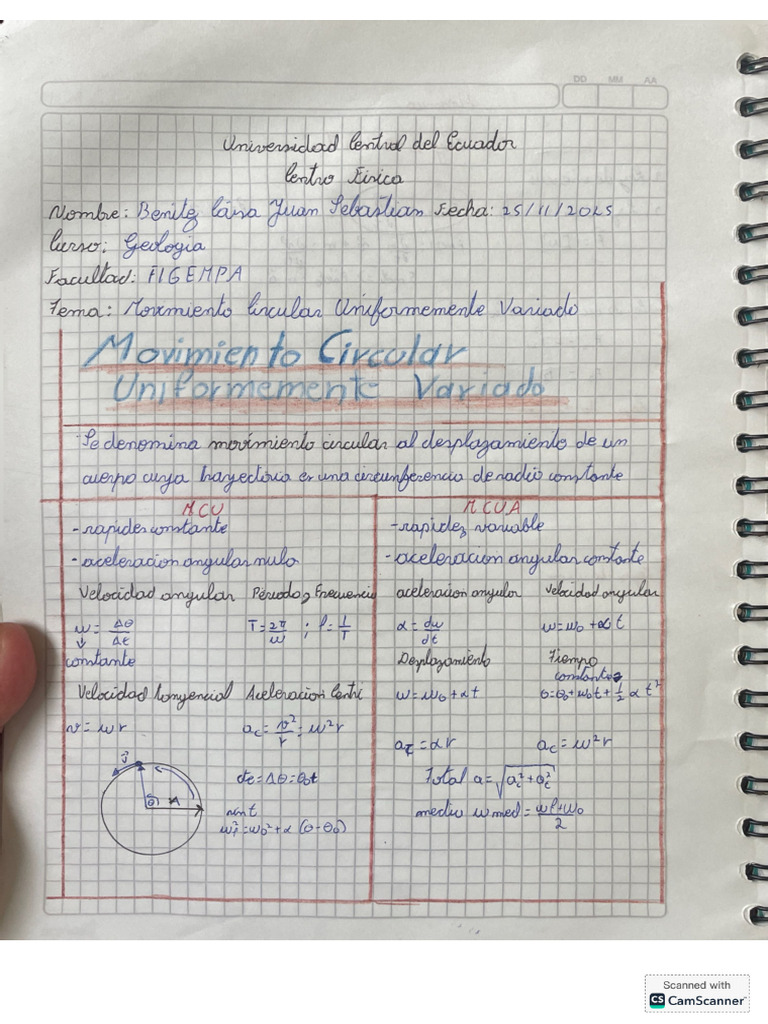 DD MM AA
Universidad Central del Ecuador
Centro Física
Nombre: Benitez Juan Sebastian Fecha: 25/11/2025
Curso: Geologia
Facultad: FIGEMPA
Tema: Movimiento Circular Uniformemente Variado
Movimiento Circular
Uniformemente Variado
Se denomina movimiento circular al desplazamiento de un
cuerpo cuya trayectoria es una circunferencia de radio constante
MCU
- rapidez constante
- aceleracion angular nula
Velocidad angular Periodo y Frecuencia
ω = Δθ/Δt T = 2π/ω ; f = 1/T
constante
Velocidad tangencial Aceleracion Centri
v = ωr ac = v²/r = ω²r
θ
= Δθ = θ₀t
ωf² = ω₀² + α (θ - θ₀)
MCUA
- rapidez variable
- aceleracion angular constante
aceleracion angular Velocidad angular
α = dω/dt ω = ω₀ + αt
Desplazamiento Tiempo
constante
ω = ω₀ + αt θ = θ₀ + ω₀t + 1/2 αt²
aτ = αr ac = ω²r
Total a = √
media ω med = ωf+ω₀/2
Scanned with
CS CamScanner